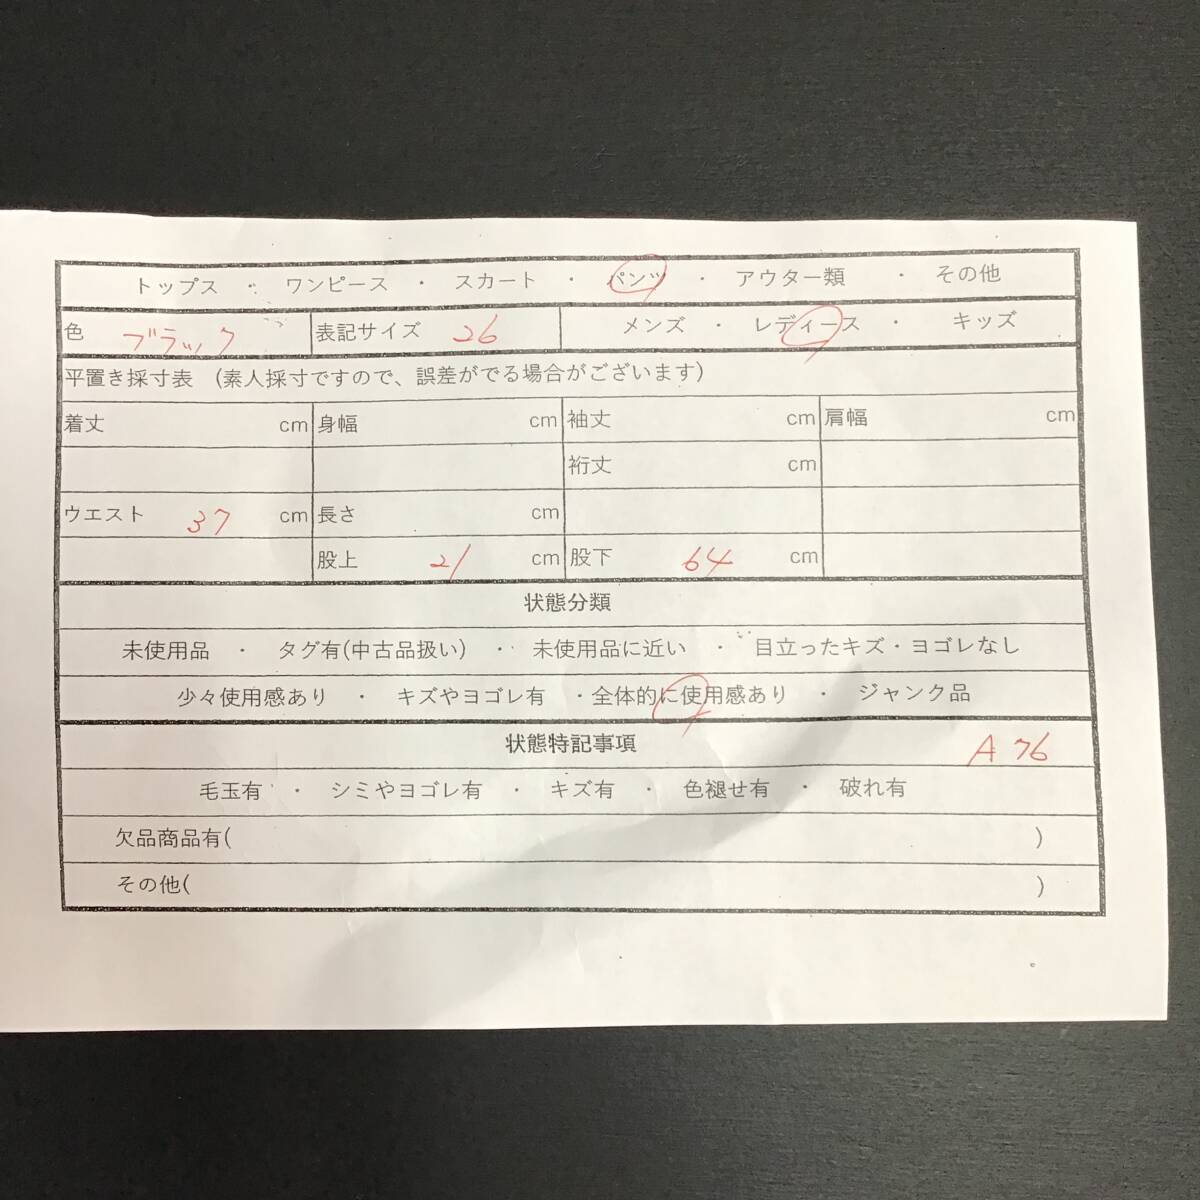 トップス ・ ワンピース ・ スカート ・ パンツ ・ アウター類 ・ その他
色 ブラック 表記サイズ 26 メンズ ・ レディース ・ キッズ
平置き採寸表 (素人採寸ですので、誤差がでる場合がございます)
着丈 cm 身幅 cm 袖丈 cm 肩幅 cm
裄丈 cm
ウエスト 37 cm 長さ cm
股上 21 cm 股下 64 cm
状態分類
未使用品 ・ タグ有(中古品扱い) ・ 未使用品に近い ・ 目立ったキズ・ヨゴレなし
少々使用感あり ・ キズやヨゴレ有 ・全体的に使用感あり ・ ジャンク品
状態特記事項 A 76
毛玉有 ・ シミやヨゴレ有 ・ キズ有 ・ 色褪せ有 ・ 破れ有
欠品商品有( )
その他( )